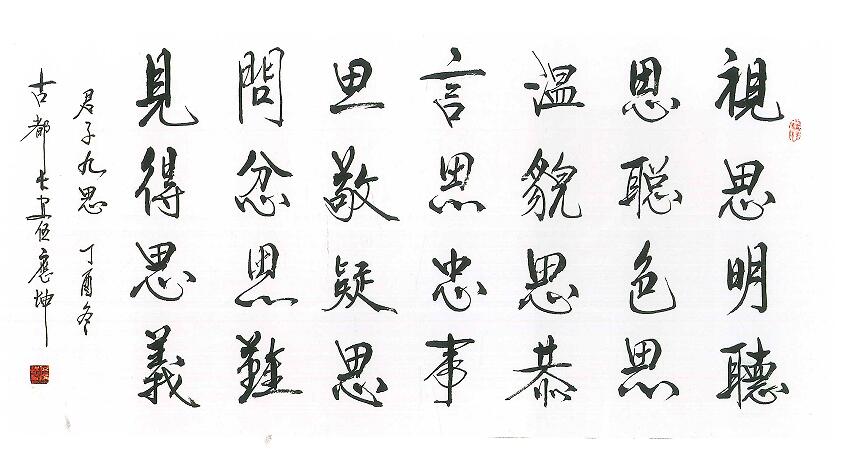 視思明聽
思聪色思
温貌思恭
言思忠事
思敬疑思
問忿思難
見得思義
君子九思 丁酉冬
古都 伍應坤